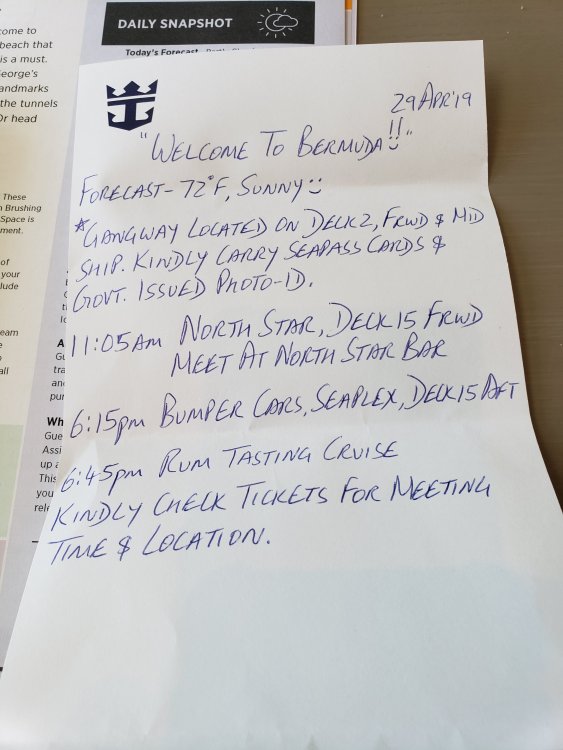 come to
beach that
is a must.
eorge's
andmarks
the tunnels
Or head
DAILY SNAPSHOT
Today's Forecast
These
Brushing
Space is
ment.
of
your
lude
eam
e
all
29 APR'19
"WELCOME TO BERMUDA!!"
FORECAST - 72°F, SUNNY
*GANGWAY LOCATED ON DECK 2, FRWD & MID
SHIP. KINDLY CARRY SEAPASS CARDS &
GOVT. ISSUED PHOTO-ID.
11:05AM NORTH STAR, DECK 15 FRWD
MEET AT NORTH STAR BAR
6:15pm BUMPER CARS, SEAPLEX, DECK 15 AFT
6:45pm RUM TASTING CRUISE
KINDLY CHECK TICKETS FOR MEETING
TIME & LOCATION.
A
Gu
tra
an
pur
Wh
Gue
Assi
up a
This
you
rele